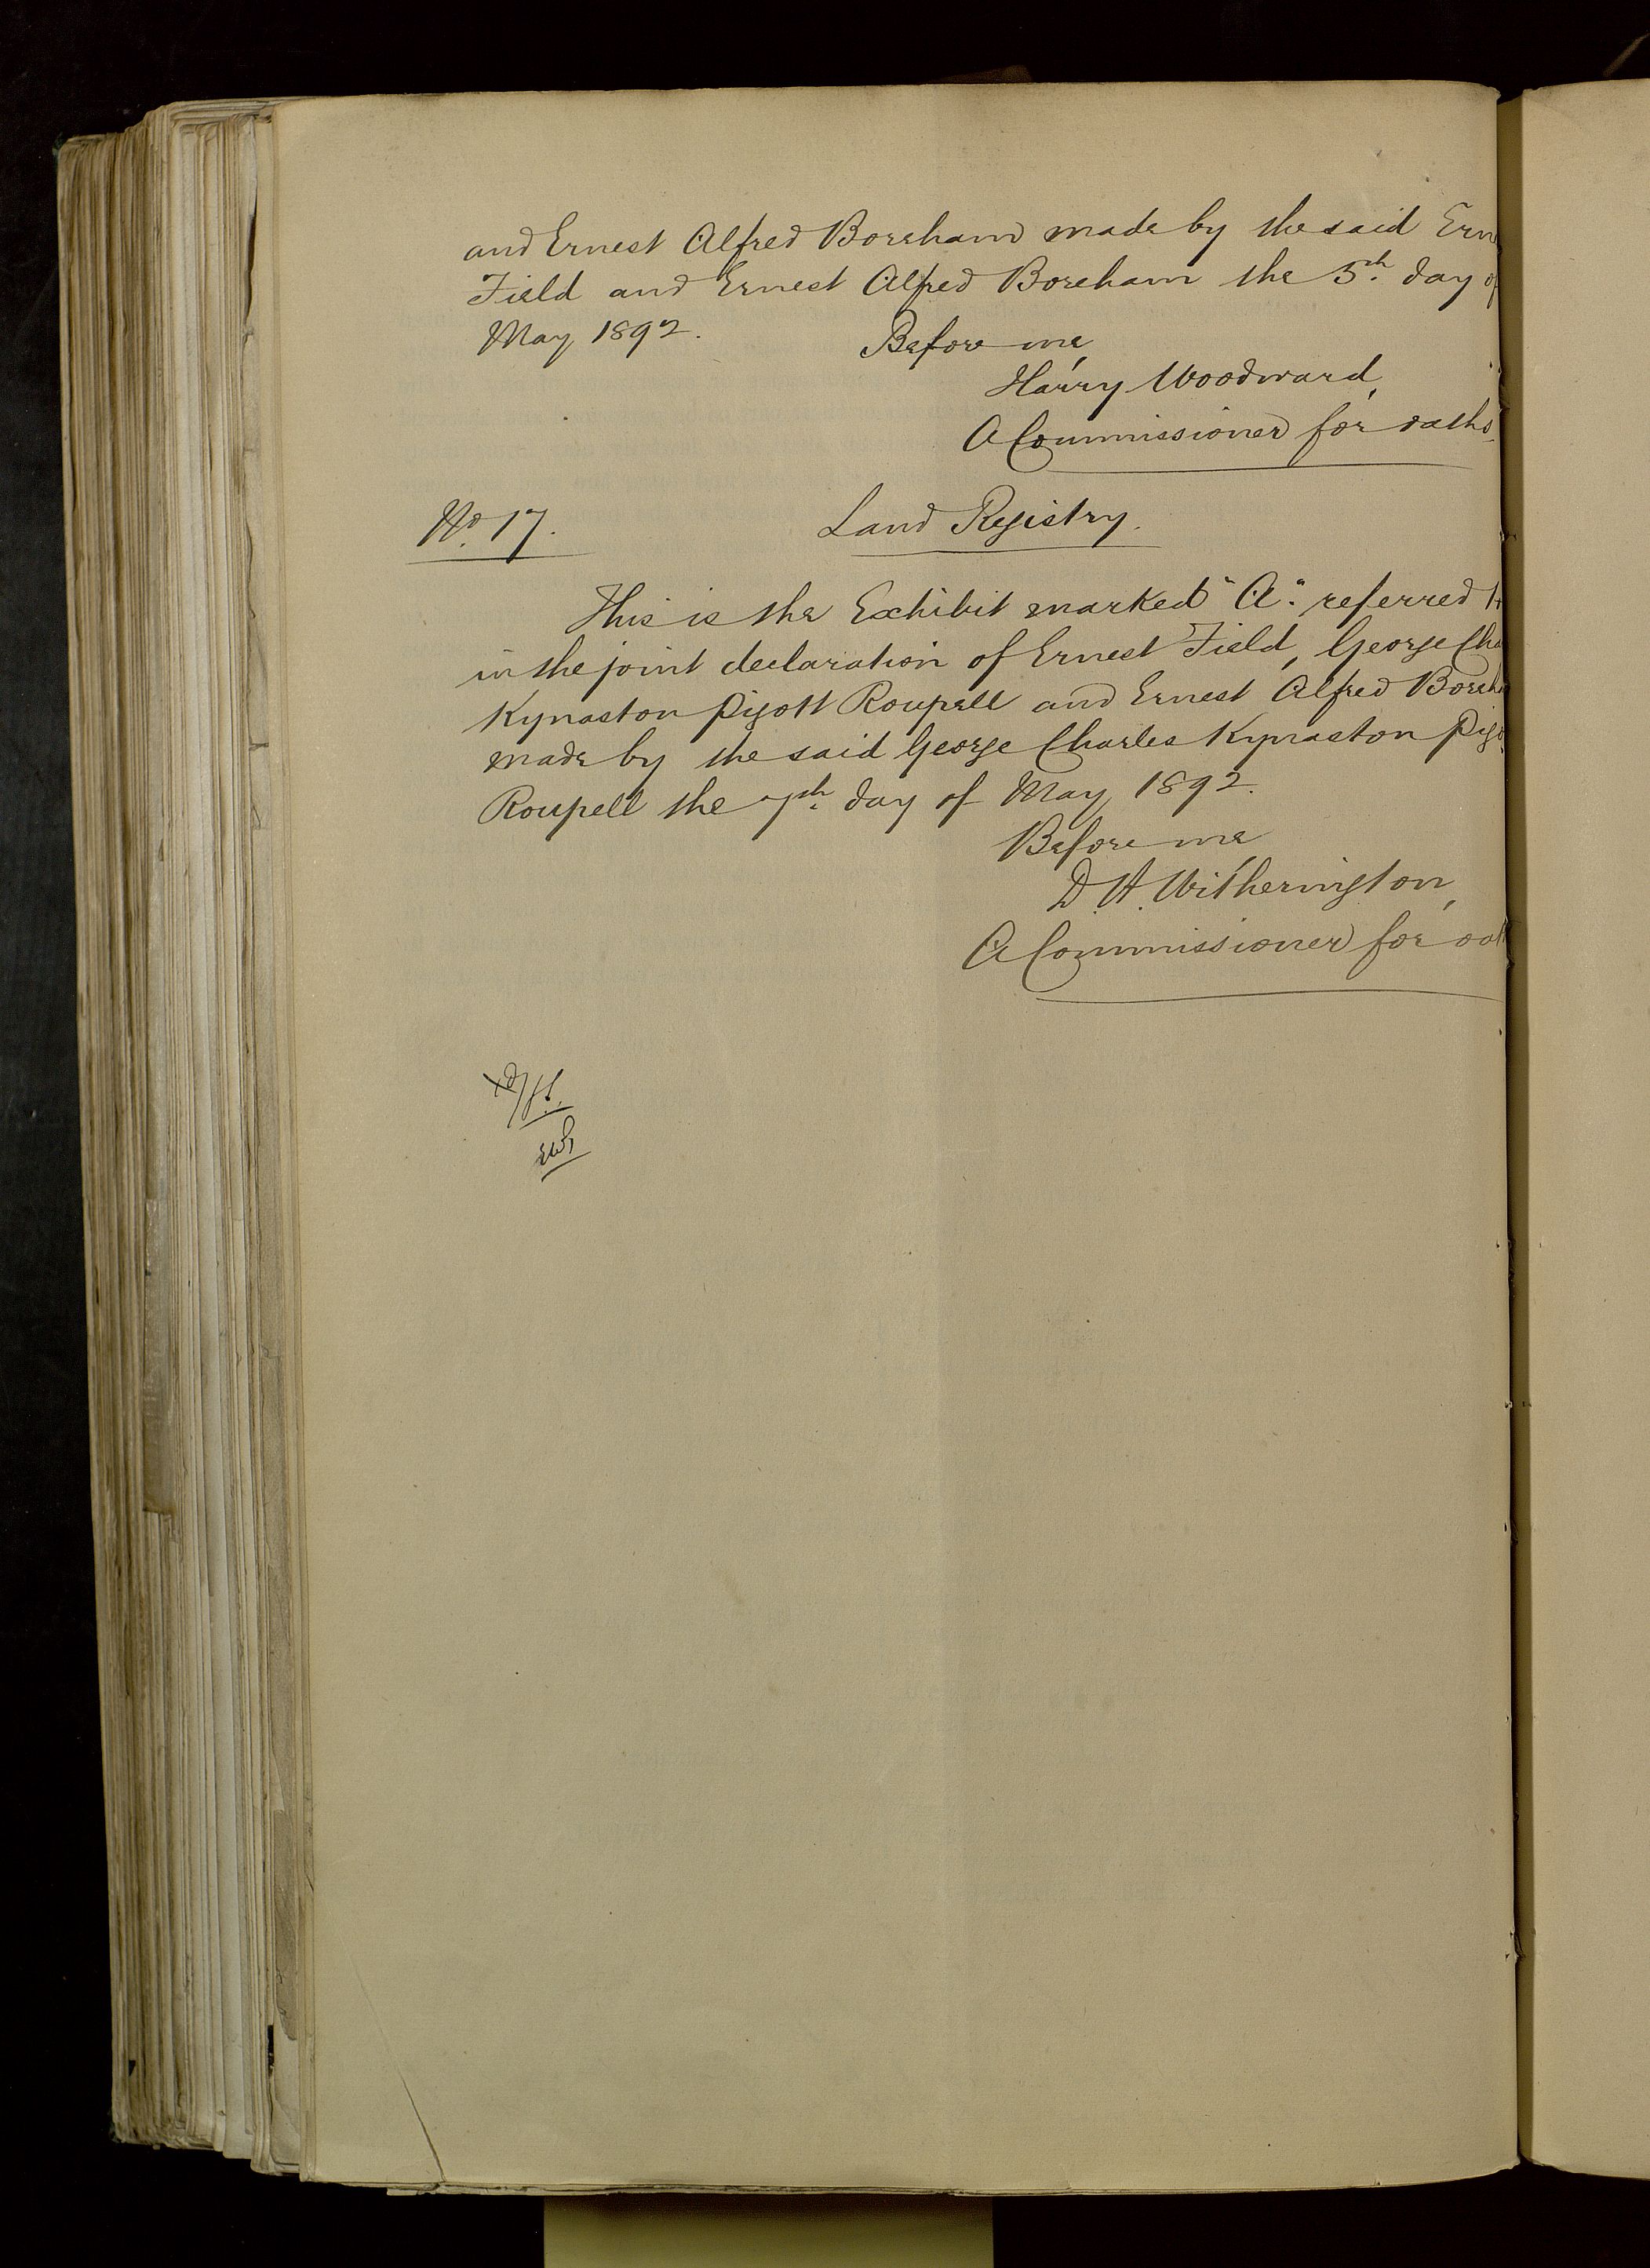 and Ernest Alfred Boreham made by the said Ern
Field and Ernest Alfred Boreham the 5th day of
May 1892.
Before me,
Harry Woodward,
A Commissioner for oaths.
No. 17.
Land Registry.
This is the Exhibit marked "A" referred to
in the joint declaration of Ernest Field, George Cha
Kynaston Pigott Roupell and Ernest Alfred Boreha
made by the said George Charles Kynaston Pigo
Roupell the 7th day of May, 1892.
Before me,
D. H. Witherington,
A Commissioner for oat